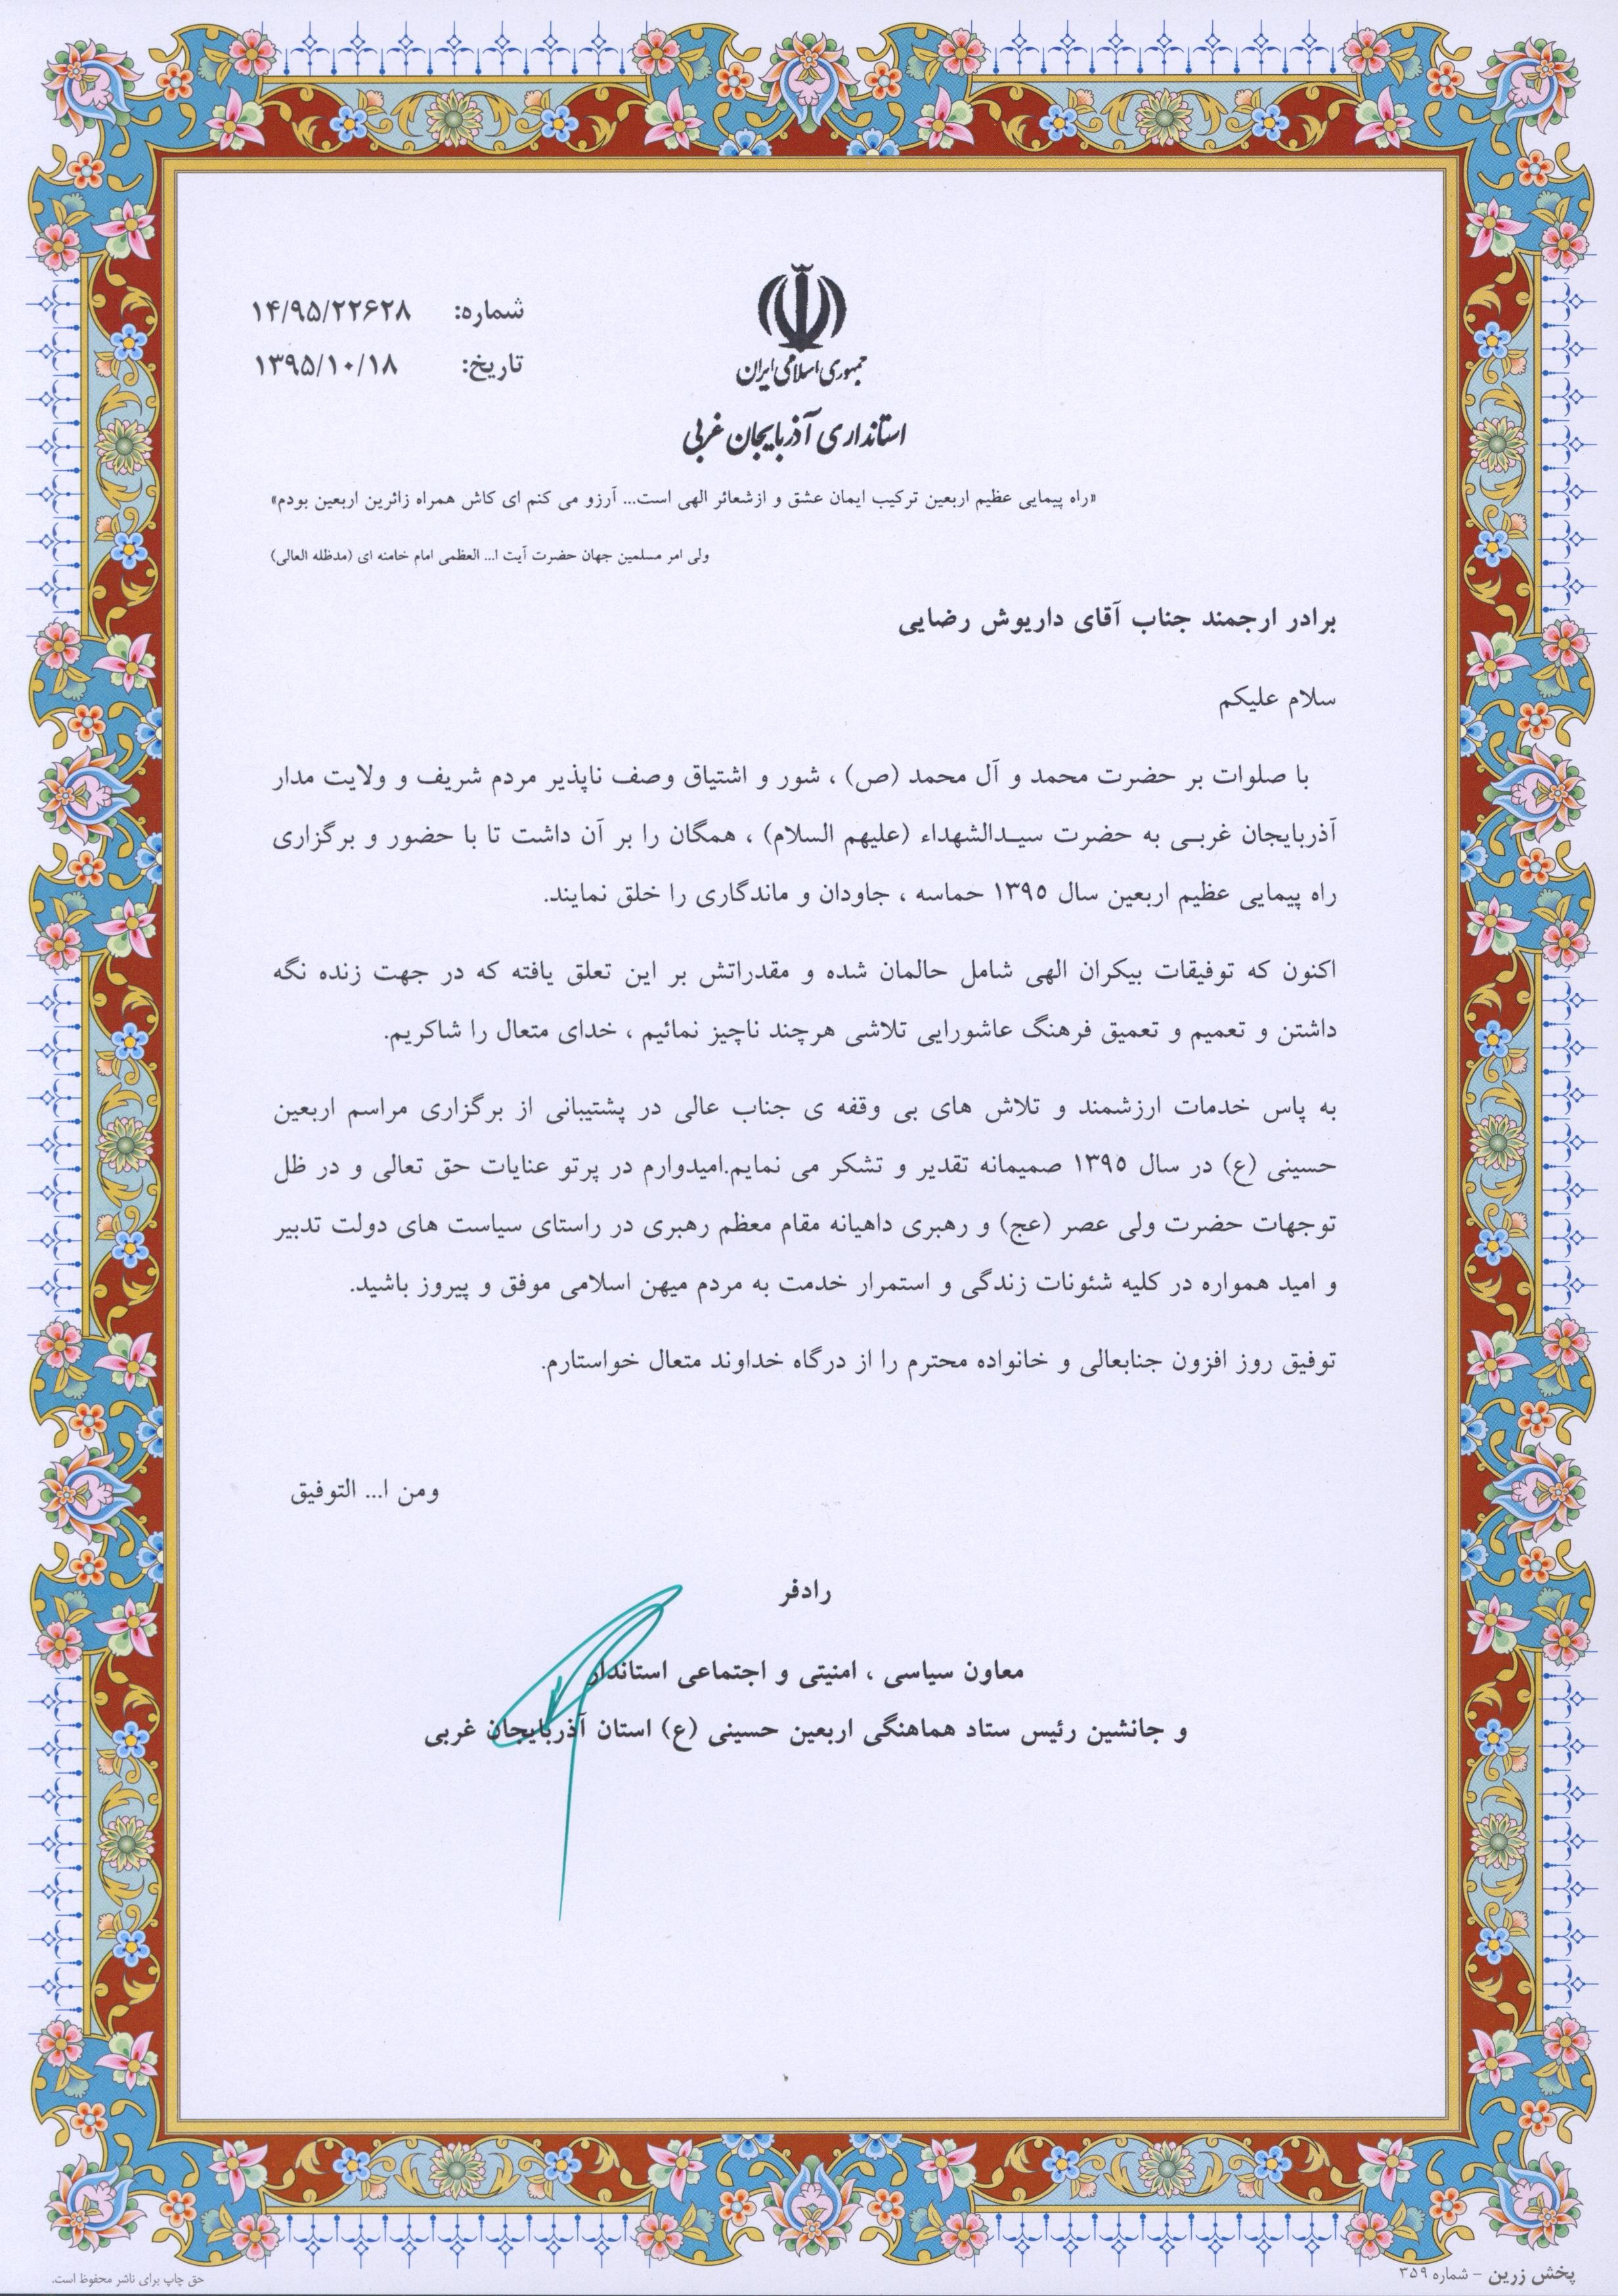 جمهوری اسلامی ایران
استانداری آذربایجان غربی
شماره: ۱۴/۹۵/۲۲۶۲۸
تاریخ: ۱۳۹۵/۱۰/۱۸
«راه پیمایی عظیم اربعین ترکیب ایمان عشق و ازشعائر الهی است... آرزو می کنم ای کاش همراه زائرین اربعین بودم»
ولی امر مسلمین جهان حضرت آیت ا... العظمی امام خامنه ای (مدظله العالی)
برادر ارجمند جناب آقای داریوش رضایی
سلام علیکم
با صلوات بر حضرت محمد و آل محمد (ص) ، شور و اشتیاق وصف ناپذیر مردم شریف و ولایت مدار
آذربایجان غربـی به حضرت سیـدالشهداء (علیهم السلام) ، همگان را بر آن داشت تا با حضور و برگزاری
راه پیمایی عظیم اربعین سال ۱۳۹۵ حماسه ، جاودان و ماندگاری را خلق نمایند.
اکنون که توفیقات بیکران الهی شامل حالمان شده و مقدراتش بر این تعلق یافته که در جهت زنده نگه
داشتن و تعمیم و تعمیق فرهنگ عاشورایی تلاشی هرچند ناچیز نمائیم ، خدای متعال را شاکریم.
به پاس خدمات ارزشمند و تلاش های بی وقفه ی جناب عالی در پشتیبانی از برگزاری مراسم اربعین
حسینی (ع) در سال ۱۳۹۵ صمیمانه تقدیر و تشکر می نمایم.امیدوارم در پرتو عنایات حق تعالی و در ظل
توجهات حضرت ولی عصر (عج) و رهبری داهیانه مقام معظم رهبری در راستای سیاست های دولت تدبیر
و امید همواره در کلیه شئونات زندگی و استمرار خدمت به مردم میهن اسلامی موفق و پیروز باشید.
توفیق روز افزون جنابعالی و خانواده محترم را از درگاه خداوند متعال خواستارم.
ومن ا... التوفیق
رادفر
معاون سیاسی ، امنیتی و اجتماعی استاندار
و جانشین رئیس ستاد هماهنگی اربعین حسینی (ع) استان آذربایجان غربی
پخش زرین - شماره ۳۵۹
حق چاپ برای ناشر محفوظ است.